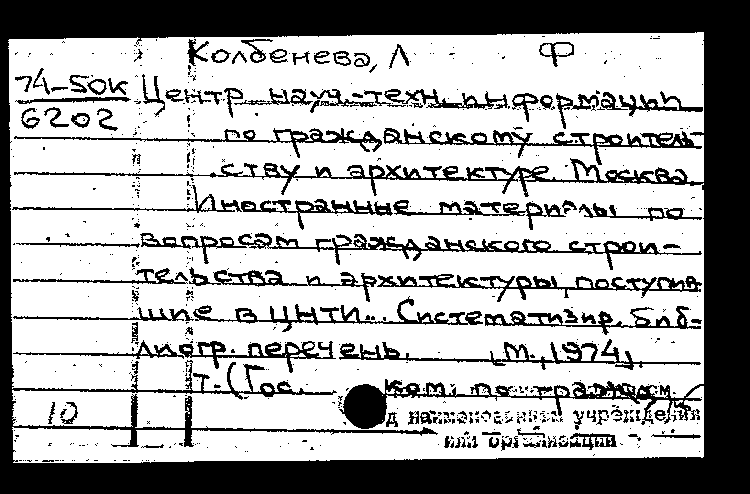 Колбенева, Л Ф
74-50К Центр науч.-техн. информации
6202 по гражданскому строитель-
ству и архитектуре. Москва.
Иностранные материалы по
вопросам гражданского строи-
тельства и архитектуры, поступив-
шие в ЦНТИ... Систематизир. библ-
лиогр. перечень. [М., 1974].
Т.- (Гос. ком. по граждан
10 д наименованием учреждения
или организации